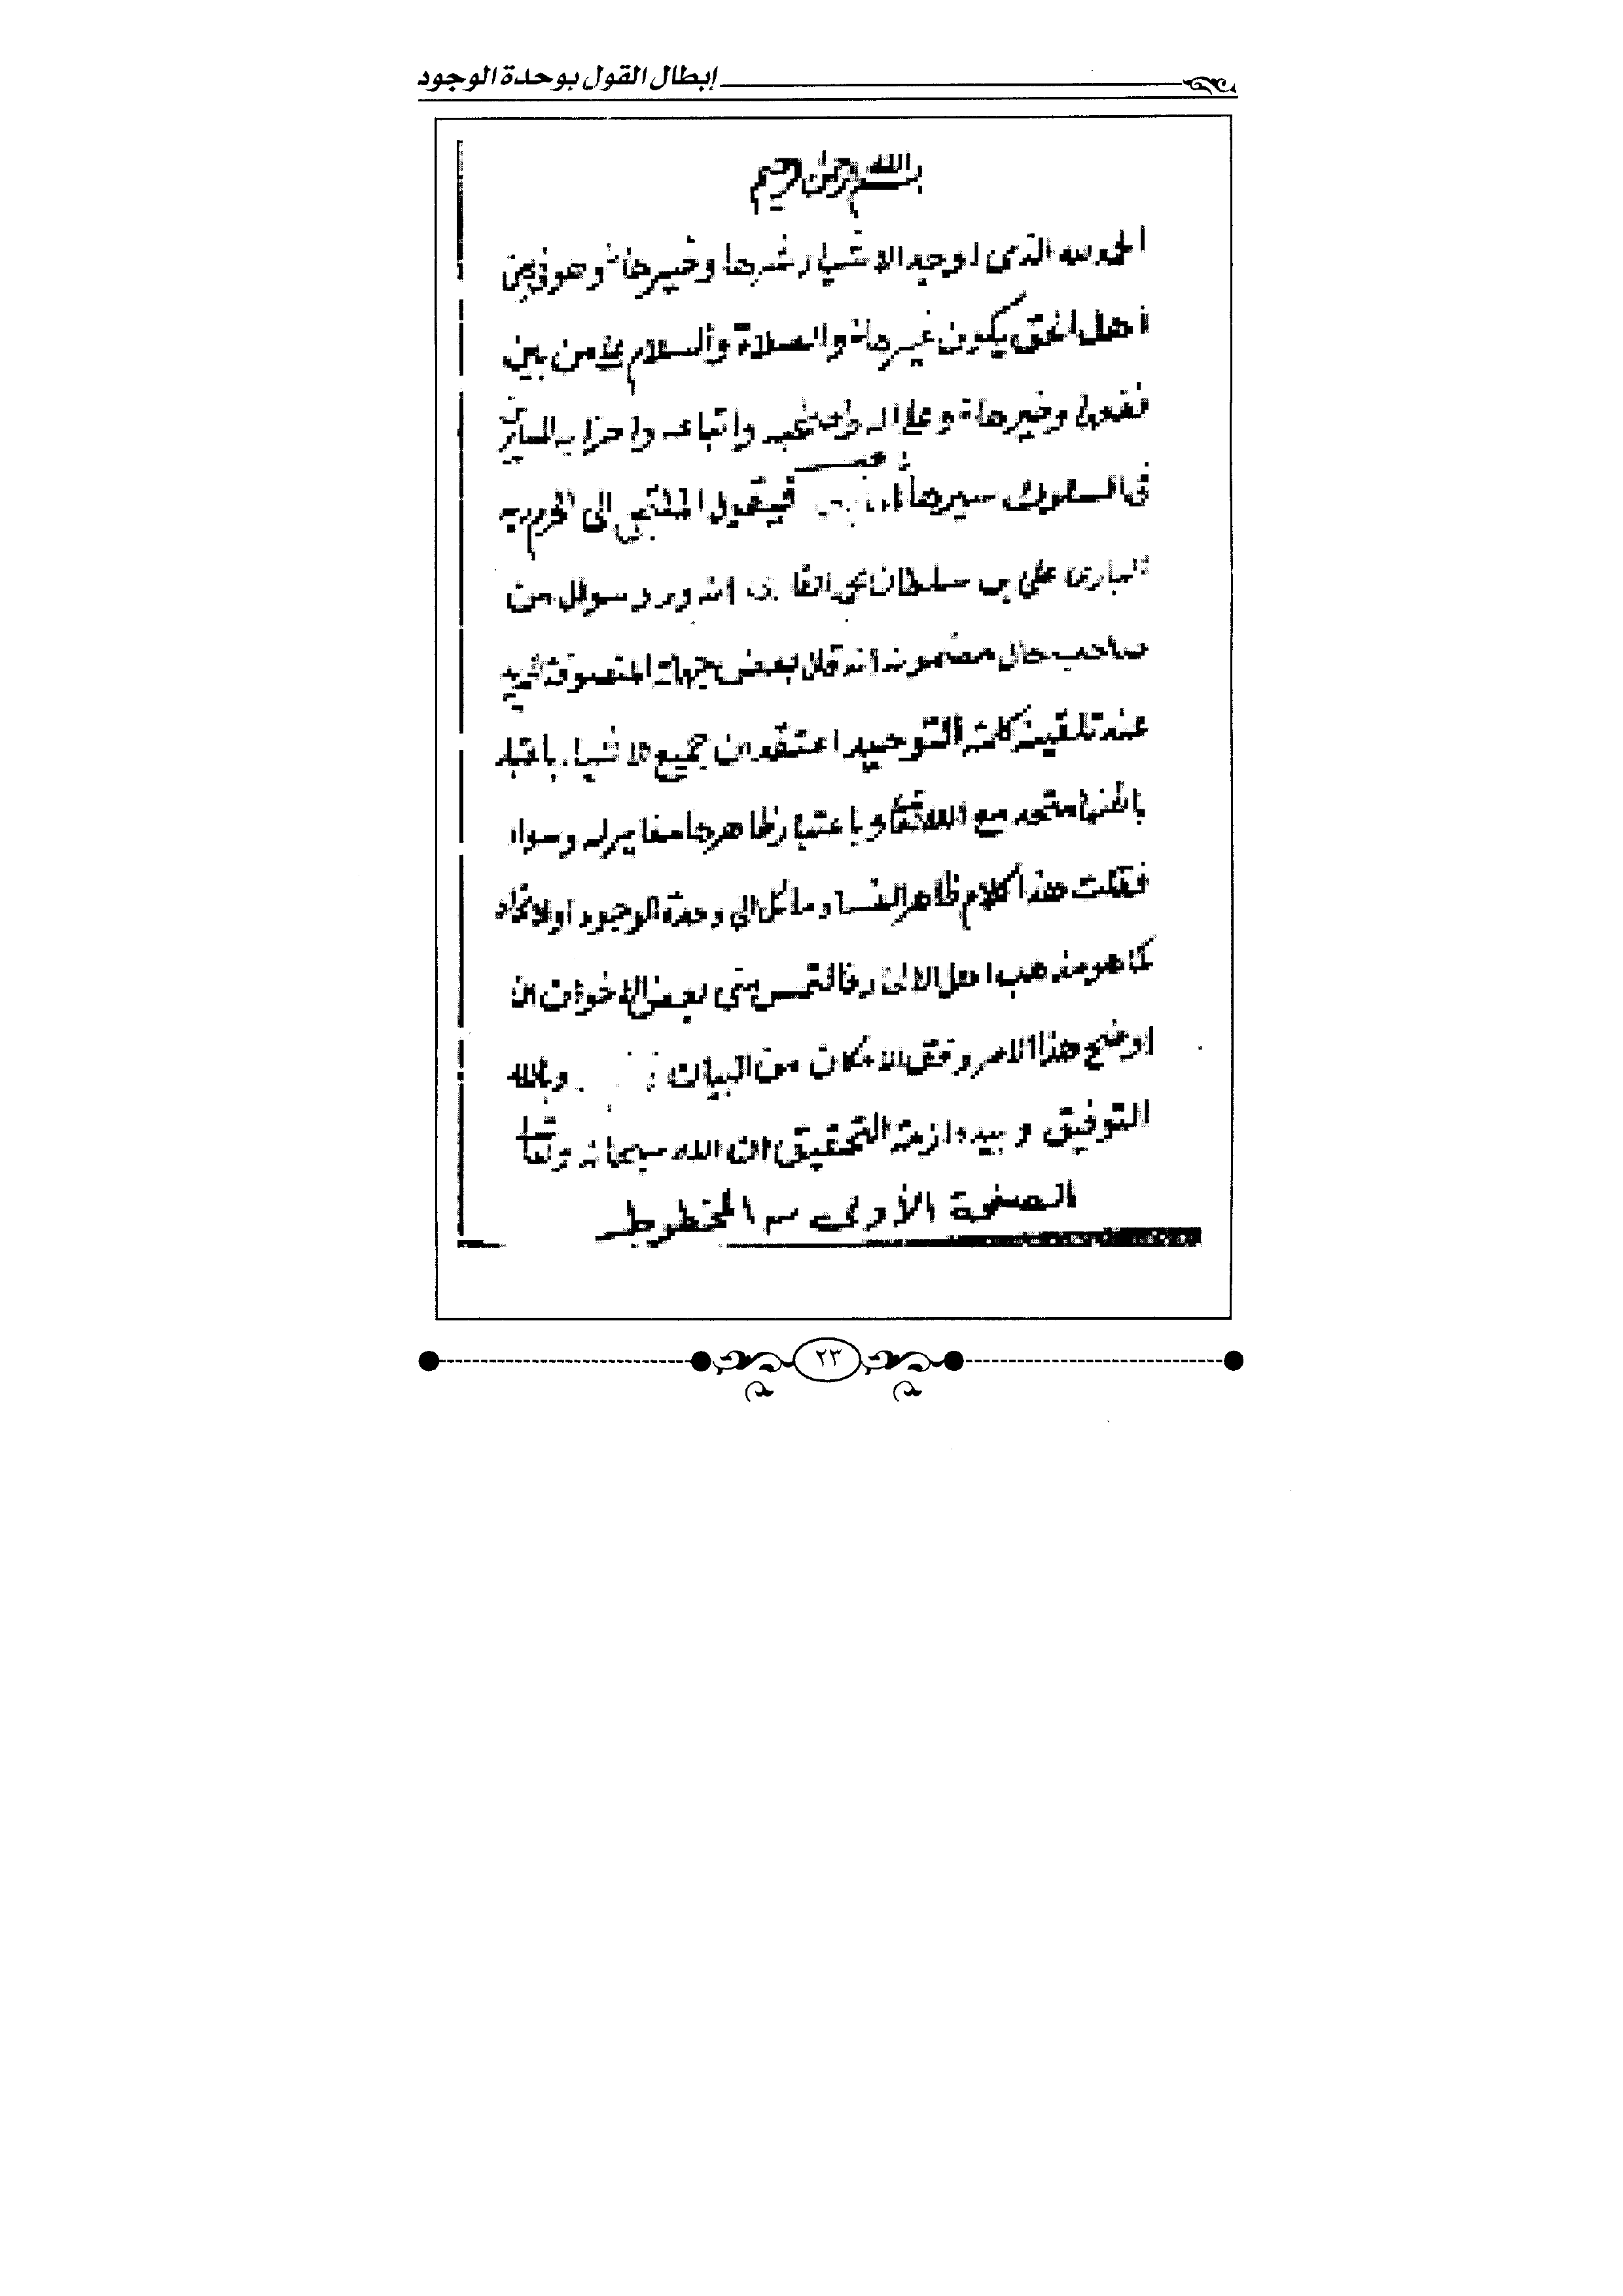 إبطال القول بوحدة الوجود
بسم الله الرحمن الرحيم
الحمد لله الذي اوجد الاشيا شرها وخيرها وهو في
اهل الحق يكون غيرها والصلاة والسلام على من بين
نفعها وضيرها وعلى اله واصحابه واتباعه واحزابه
في السلوك سيرها اما بعد فيقول الملتجي الى حرم ربه
البارى علي بن سلطان محمد القاري انه ورد سوال من
صاحب حال مضمونه انه قال بعض جهلة المتصوفة للمريد
عند تلقينه كلمة التوحيد اعتقد ان جميع الاشيا باعتبار
باطنها متحد مع الله تعالى وباعتبار ظاهرها مغاير له وسواه
فقلت هذا كلام ظاهر الفساد مائل الى وحدة الوجود او الاتحاد
كما هو مذهب اهل الالحاد فالتمس مني بعض الاخوان ان
اوضح هذا الامر وفق الامكان من البيان وبالله
التوفيق وبيده ازمة التحقيق ان الله سبحانه وتعالى
الصفحة الأولى من المخطوط
٢٣